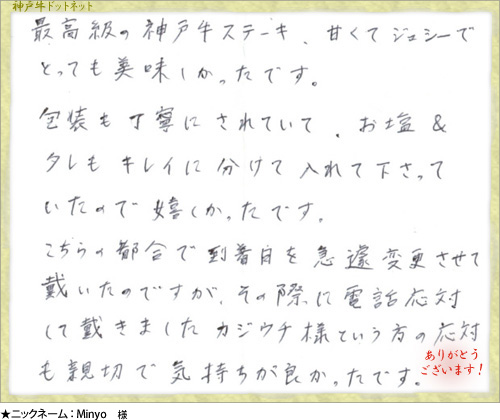 神戸牛ドットネット
最高級の神戸牛ステーキ、甘くてジューシーで
とっても美味しかったです。
包装も丁寧にされていて、お塩&
タレもキレイに分けて入れて下さって
いたので嬉しかったです。
こちらの都合で到着日を急遽変更させて
戴いたのですが、その際に電話応対
して戴きましたカジウチ様という方の応対
も親切で気持ちが良かったです。
ありがとう
ございます!
★ニックネーム:Minyo 様